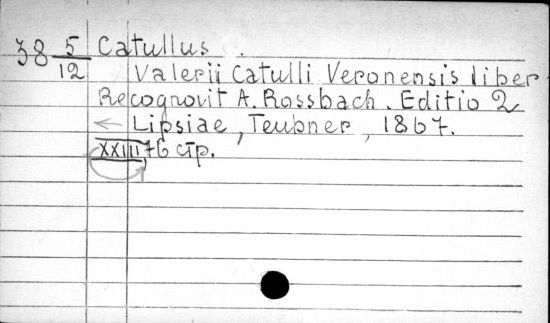 38 5/12 Catullus.
Valerii Catulli Veronensis liber
Recognovit A. Rossbach. Editio 2
← Lipsiae, Teubner, 1867.
XXIII, 76 стр.